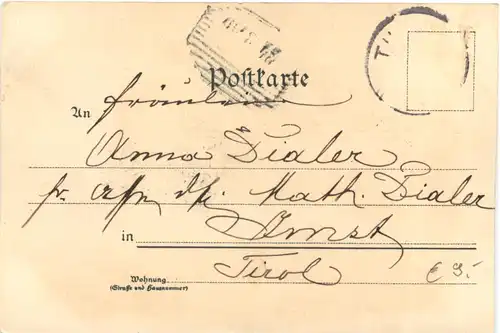 Postkarte
An Fräulein
Anna Dialer
Math. Dialer
in Imst
Tirol
Wohnung
(Straße und Hausnummer)
€ 9.-